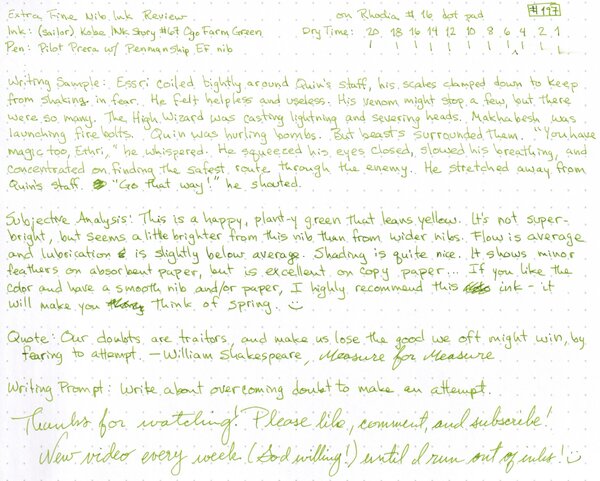 Extra Fine Nib Ink Review on Rhodia #16 dot pad #197
Ink: (sailor) Kobe INK Story #67 Ogo Farm Green Dry Time: 20 18 16 14 12 10 8 6 4 2 1
Pen: Pilot Prera w/ Penmanship EF nib
Writing Sample: Essri coiled tightly around Quin's staff, his scales clamped down to keep
from shaking in fear. He felt helpless and useless. His venom might stop a few, but there
were so many. The High Wizard was casting lightning and severing heads. Makhabesh was
launching fire bolts. Quin was hurling bombs. But beasts surrounded them. "You have
magic too, Ethri," he whispered. He squeezed his eyes closed, slowed his breathing, and
concentrated on finding the safest route through the enemy. He stretched away from
Quin's staff. "Go that way!" he shouted.
Subjective Analysis: This is a happy, plant-y green that leans yellow. It's not super-
bright, but seems a little brighter from this nib than from wider nibs. Flow is average
and lubrication is slightly below average. Shading is quite nice. It shows minor
feathers on absorbent paper, but is excellent on copy paper... If you like the
color and have a smooth nib and/or paper, I highly recommend this ink - it
will make you think of spring. :)
Quote: Our doubts are traitors, and make us lose the good we oft might win, by
fearing to attempt. —William Shakespeare, Measure for Measure
Writing Prompt: Write about overcoming doubt to make an attempt.
Thanks for watching! Please like, comment, and subscribe!
New video every week (God willing!) until I run out of inks! :)